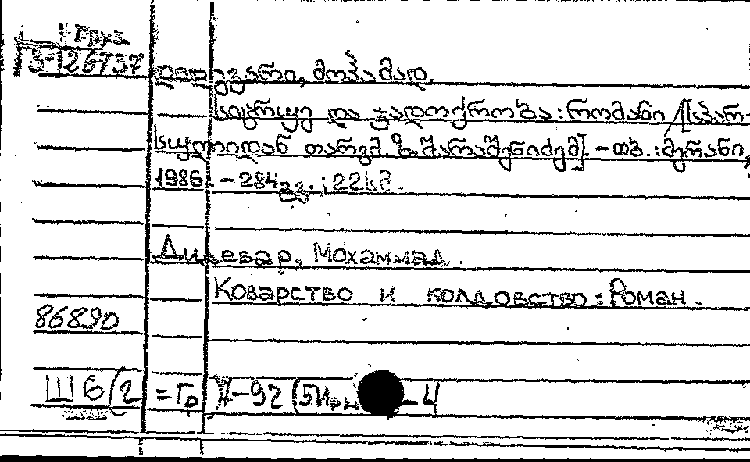 Груз.
З-126737
დილევარი, მოჰამად.
სიცრუე და ჯადოქრობა : რომანი / [სპარ-
სულიდან თარგმ. ზ. შარაშენიძემ] - თბ. : მერანი,
1986. - 284 გვ. ; 22 სმ.
Дилевар, Мохаммад.
Коварство и колдовство : Роман.
86890
Ш6/2 = Гр Д-92